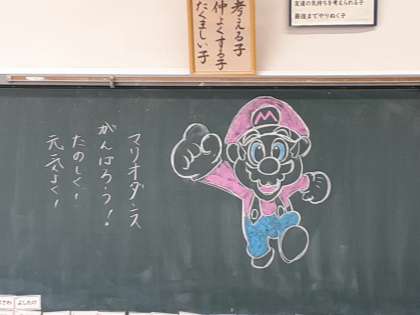 考える子
仲よくする子
たくましい子
友達の気持ちを考えられる子
最後までやりぬく子
マリオダンス
がんばろう!
たのしく!
元気よく!
M